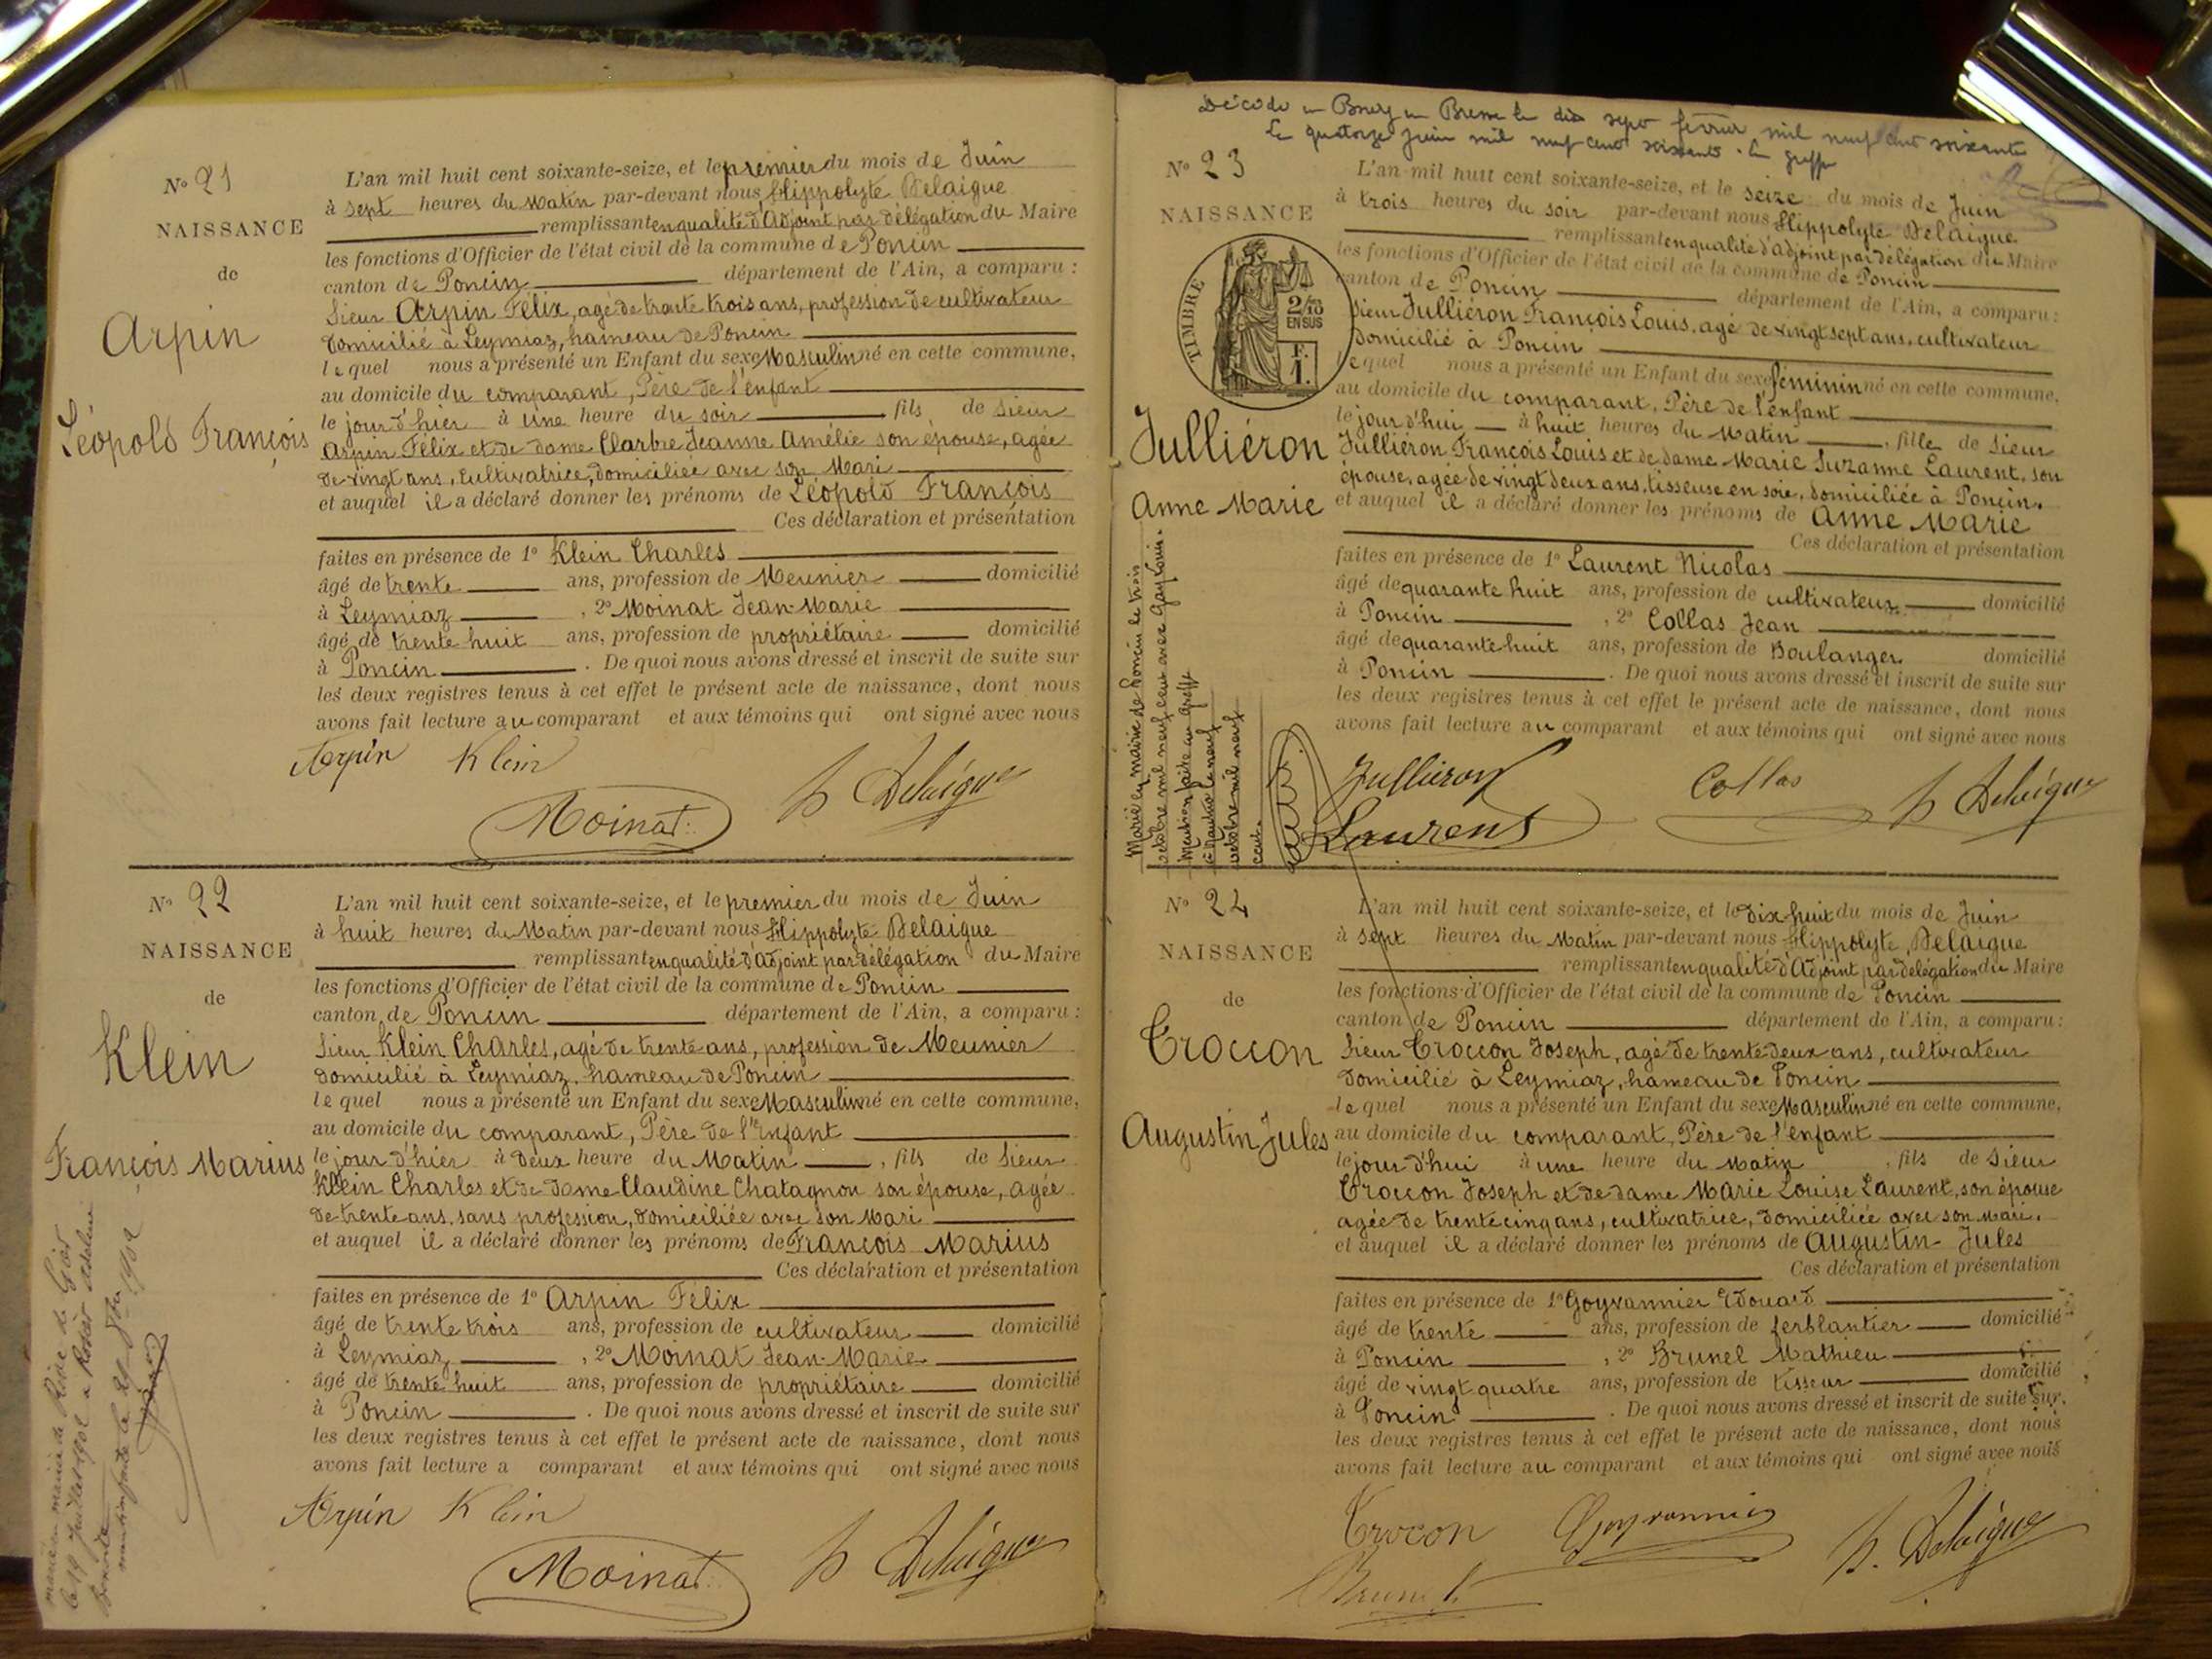 N° 21
NAISSANCE
de
Arpin
Léopold François
L'an mil huit cent soixante-seize, et le premier du mois de Juin
à sept heures du Matin par-devant nous Hippolyte Delaigue
remplissant en qualité d'Adjoint par délégation du Maire
les fonctions d'Officier de l'état civil de la commune de Poncin
canton de Poncin département de l'Ain, a comparu :
Sieur Arpin Félix, agé de trente trois ans, profession de cultivateur
domicilié à Leymiaz, hameau de Poncin
lequel nous a présenté un Enfant du sexe Masculin né en cette commune,
au domicile du comparant, Père de l'enfant
le jour d'hier à une heure du soir fils de Sieur
Arpin Félix et de dame Clarbre Jeanne Amélie son épouse, agée
de vingt ans, Cultivatrice, domiciliée avec son Mari
et auquel il a déclaré donner les prénoms de Léopold François
Ces déclaration et présentation
faites en présence de 1° Klein Charles
âgé de trente ans, profession de Meunier domicilié
à Leymiaz , 2° Moinat Jean-Marie
âgé de trente huit ans, profession de propriétaire domicilié
à Poncin . De quoi nous avons dressé et inscrit de suite sur
les deux registres tenus à cet effet le présent acte de naissance, dont nous
avons fait lecture au comparant et aux témoins qui ont signé avec nous
Arpin Klein
Moinat H Delaigue
N° 22
NAISSANCE
de
Klein
François Marius
L'an mil huit cent soixante-seize, et le premier du mois de Juin
à huit heures du Matin par-devant nous Hippolyte Delaigue
remplissant en qualité d'Adjoint par délégation du Maire
les fonctions d'Officier de l'état civil de la commune de Poncin
canton de Poncin département de l'Ain, a comparu :
Sieur Klein Charles, agé de trente ans, profession de Meunier
domicilié à Leymiaz, hameau de Poncin
lequel nous a présenté un Enfant du sexe Masculin né en cette commune,
au domicile du comparant, Père de l'Enfant
le jour d'hier à deux heure du Matin , fils de Sieur
Klein Charles et de dame Claudine Chatagnon son épouse, agée
de trente ans, sans profession, domiciliée avec son Mari
et auquel il a déclaré donner les prénoms de François Marius
Ces déclaration et présentation
faites en présence de 1° Arpin Félix
âgé de trente trois ans, profession de cultivateur domicilié
à Leymiaz , 2° Moinat Jean-Marie
âgé de trente huit ans, profession de propriétaire domicilié
à Poncin . De quoi nous avons dressé et inscrit de suite sur
les deux registres tenus à cet effet le présent acte de naissance, dont nous
avons fait lecture a comparant et aux témoins qui ont signé avec nous
Arpin Klein
Moinat H Delaigue
mairie de Rive de Gier
le 19 Juillet 1902 à
1902
Décédé en Bourg en Bresse le dix sept février mil neuf cent soixante
Le quatorze Juin mil neuf cent soixante. Le greffier
N° 23
NAISSANCE
TIMBRE
2/10
EN SUS
F.
1.
Julliéron
Anne Marie
L'an mil huit cent soixante-seize, et le seize du mois de Juin
à trois heures du soir par-devant nous Hippolyte Delaigue
remplissant en qualité d'adjoint par délégation du Maire
les fonctions d'Officier de l'état civil de la commune de Poncin
canton de Poncin département de l'Ain, a comparu :
Sieur Julliéron François Louis, agé de vingt sept ans, cultivateur
domicilié à Poncin
lequel nous a présenté un Enfant du sexe féminin né en cette commune,
au domicile du comparant, Père de l'enfant
le jour d'hui à huit heures du Matin , fille de Sieur
Julliéron François Louis et de dame Marie Suzanne Laurent, son
épouse, agée de vingt deux ans, tisseuse en soie, domiciliée à Poncin.
et auquel il a déclaré donner les prénoms de Anne Marie
Ces déclaration et présentation
faites en présence de 1° Laurent Nicolas
âgé de quarante huit ans, profession de cultivateur domicilié
à Poncin , 2° Collas Jean
âgé de quarante huit ans, profession de Boulanger domicilié
à Poncin . De quoi nous avons dressé et inscrit de suite sur
les deux registres tenus à cet effet le présent acte de naissance, dont nous
avons fait lecture au comparant et aux témoins qui ont signé avec nous
Julliéron Collas H Delaigue
Laurent
Marié en mairie de Poncin le trois
octobre mil neuf cent avec Gay Louis.
Mention faite au Greffe
à Nantua le neuf
octobre mil neuf
cent.
N° 24
NAISSANCE
de
Croccon
Augustin Jules
L'an mil huit cent soixante-seize, et le dix-huit du mois de Juin
à sept heures du Matin par-devant nous Hippolyte Delaigue
remplissant en qualité d'Adjoint par délégation du Maire
les fonctions d'Officier de l'état civil de la commune de Poncin
canton de Poncin département de l'Ain, a comparu :
Sieur Croccon Joseph, agé de trente deux ans, cultivateur
domicilié à Leymiaz, hameau de Poncin
lequel nous a présenté un Enfant du sexe Masculin né en cette commune,
au domicile du comparant, Père de l'enfant
le jour d'hui à une heure du Matin , fils de Sieur
Croccon Joseph et de dame Marie Louise Laurent, son épouse
agée de trente cinq ans, cultivatrice, domiciliée avec son Mari.
et auquel il a déclaré donner les prénoms de Augustin Jules
Ces déclaration et présentation
faites en présence de 1° Goyvannier Edouard
âgé de trente ans, profession de ferblantier domicilié
à Poncin , 2° Brunel Mathieu
âgé de vingt quatre ans, profession de tisseur domicilié
à Poncin . De quoi nous avons dressé et inscrit de suite sur
les deux registres tenus à cet effet le présent acte de naissance, dont nous
avons fait lecture au comparant et aux témoins qui ont signé avec nous
Crocon Goyvannier H. Delaigue
Brunel